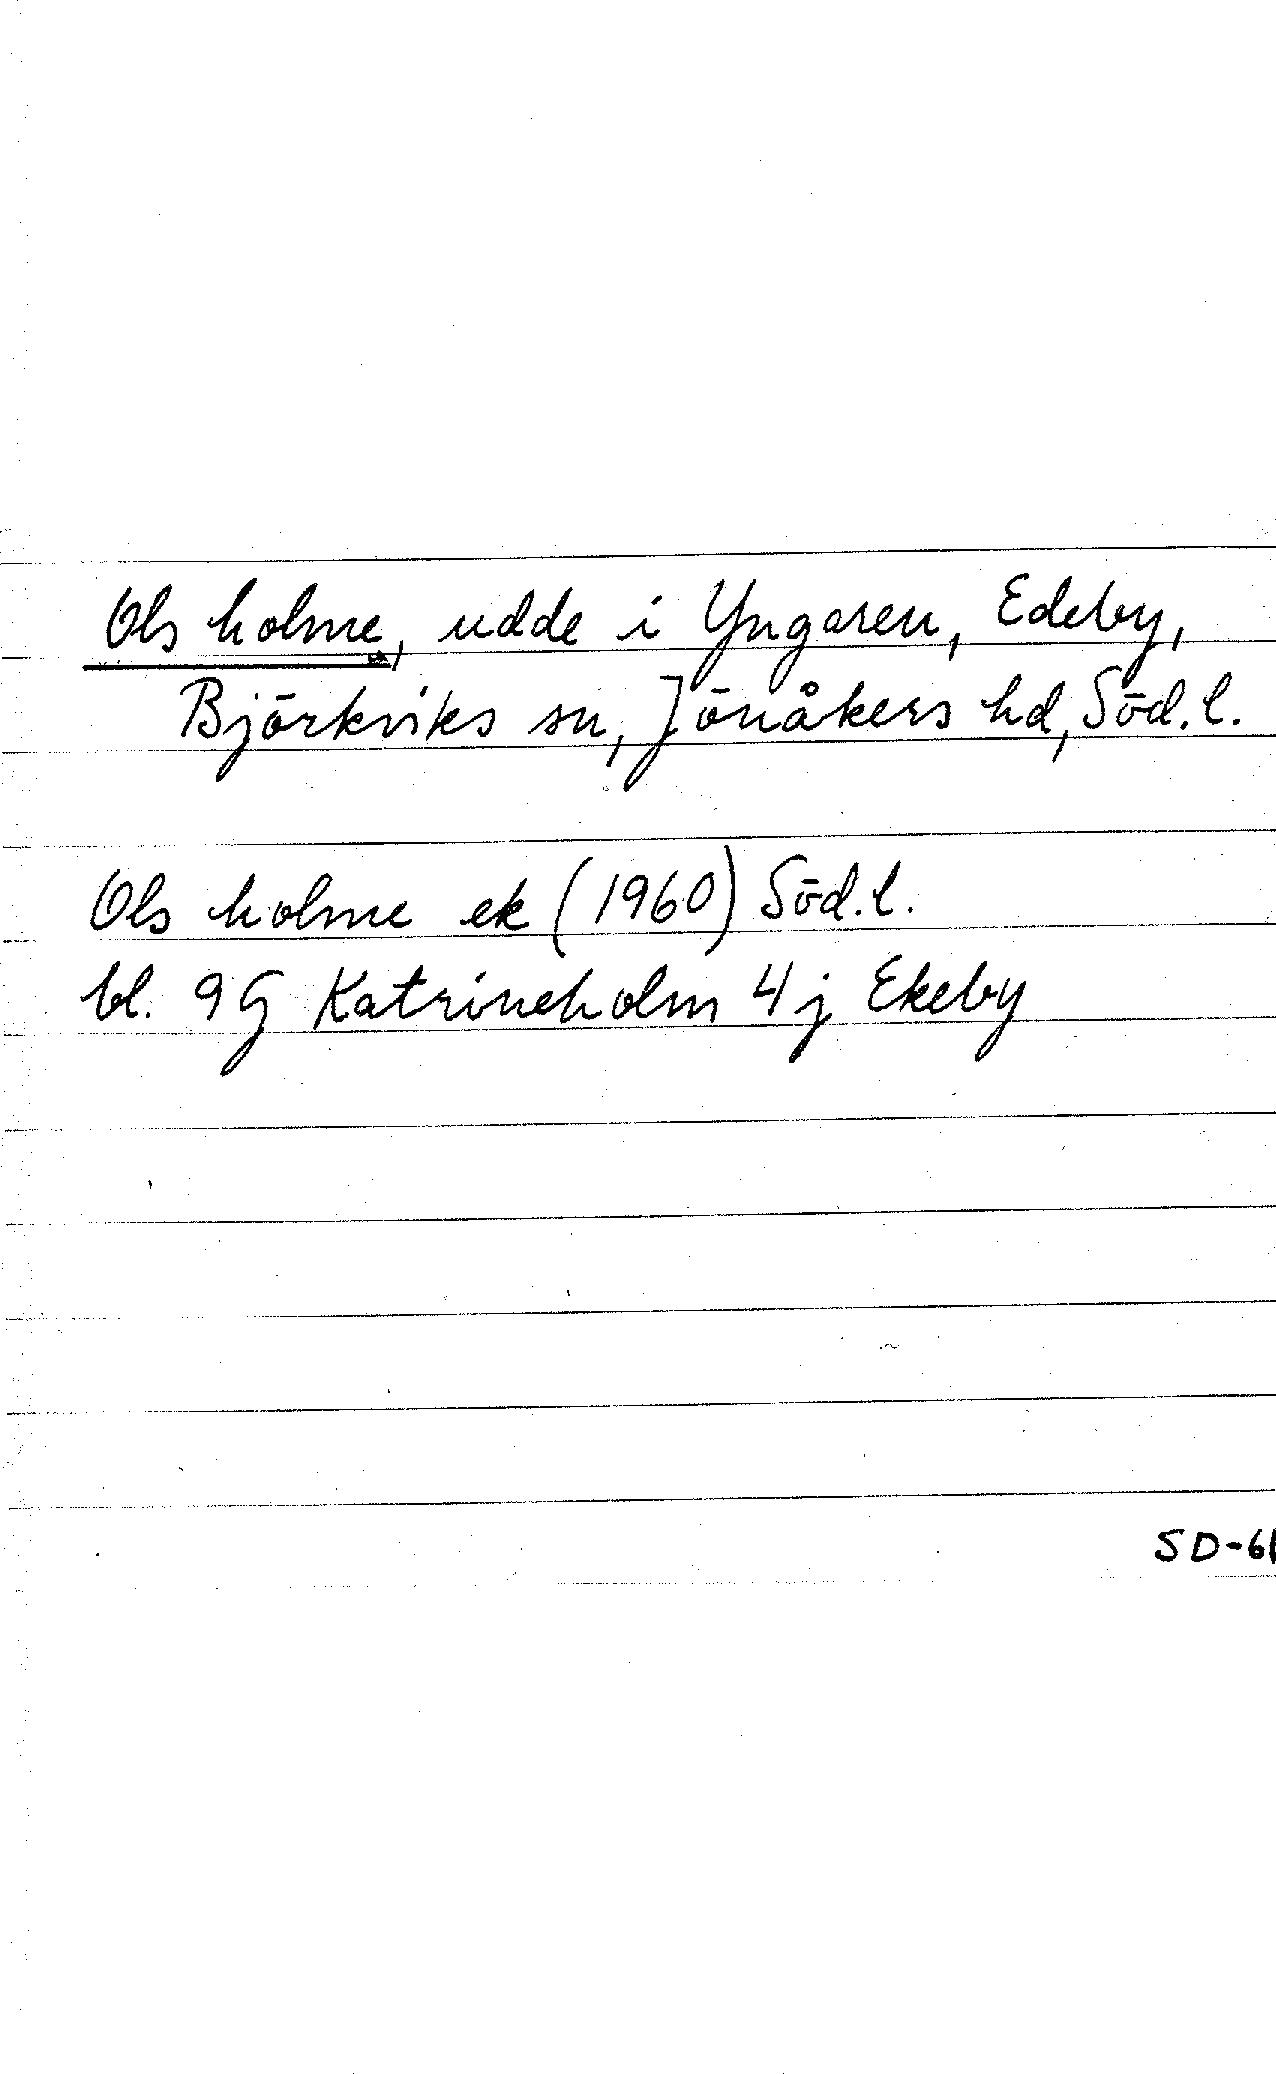 Ols holme, udde i Yngaren, Edeby,
Björkviks sn, Jönåkers hd, Söd.l.
Ols holme ek (1960) Söd.l.
bl. 9G Katrineholm 4j Ekeby
SD-61